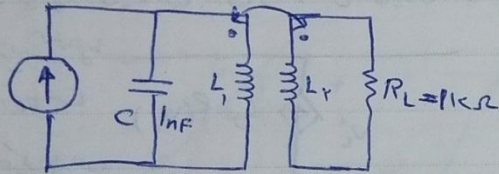 C 1nF
L1
L2
RL = 1KΩ